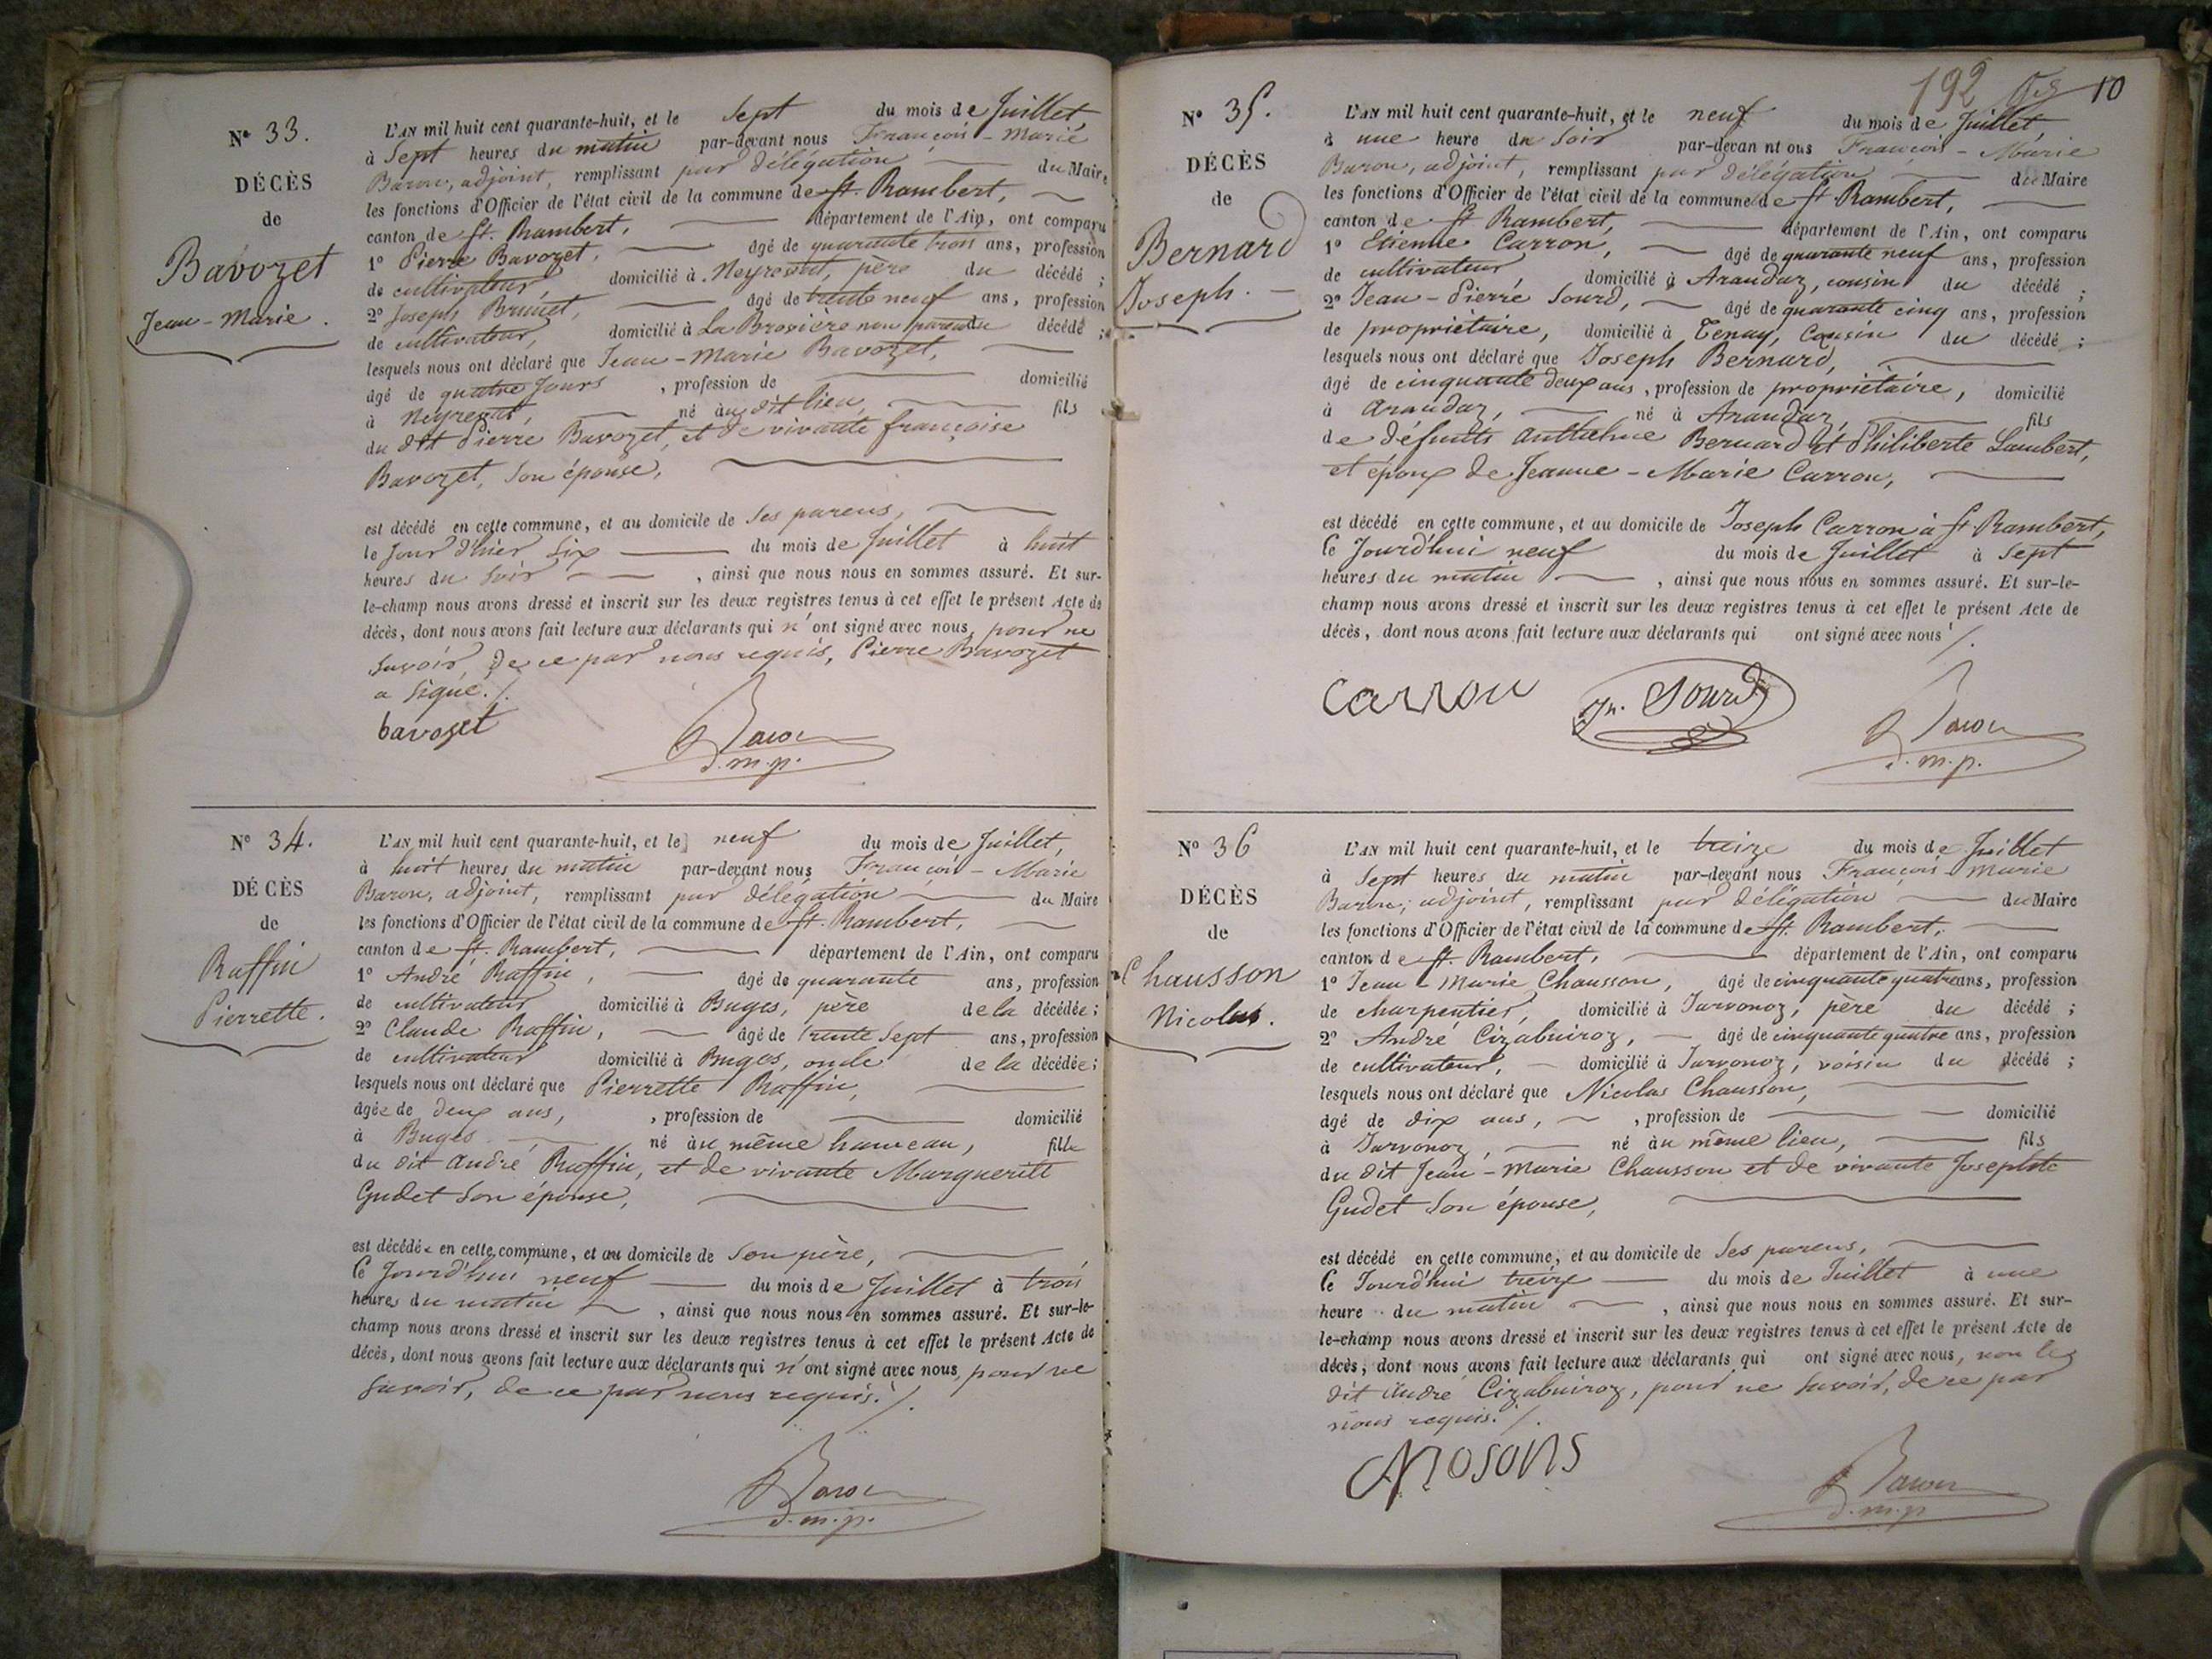 N° 33.
DÉCÈS
de
Bavozet
Jean-Marie.
L'AN mil huit cent quarante-huit, et le Sept du mois de Juillet,
à Sept heures du matin par-devant nous François-Marie
Baron, adjoint, remplissant par délégation du Maire
les fonctions d'Officier de l'état civil de la commune de St. Rambert,
canton de St. Rambert, département de l'Ain, ont comparu
1° Pierre Bavozet, âgé de quarante trois ans, profession
de cultivateur, domicilié à Neyrevat, père du décédé ;
2° Joseph Brunet, âgé de trente neuf ans, profession
de cultivateur, domicilié à La Brosière non parent du décédé ;
lesquels nous ont déclaré que Jean-Marie Bavozet,
âgé de quatre Jours , profession de domicilié
à Neyrevat, né au dit lieu, fils
du dit Pierre Bavozet, et de vivante françoise
Bavozet, Son épouse,
est décédé en cette commune, et au domicile de Ses parens,
le Jour d'hier Six du mois de Juillet à huit
heures du Soir , ainsi que nous nous en sommes assuré. Et sur-
le-champ nous avons dressé et inscrit sur les deux registres tenus à cet effet le présent Acte de
décès, dont nous avons fait lecture aux déclarants qui n'ont signé avec nous, pour ne
Savoir, de ce par nous requis, Pierre Bavozet
a Signé./.
bavozet Baron
d.m.p.
N° 34.
DÉCÈS
de
Raffin
Pierrette.
L'AN mil huit cent quarante-huit, et le neuf du mois de Juillet,
à huit heures du matin par-devant nous François-Marie
Baron, adjoint, remplissant par délégation du Maire
les fonctions d'Officier de l'état civil de la commune de St. Rambert,
canton de St. Rambert, département de l'Ain, ont comparu
1° André Raffin, âgé de quarante ans, profession
de cultivateur domicilié à Buges, père de la décédée ;
2° Claude Raffin, âgé de trente Sept ans, profession
de cultivateur domicilié à Buges, oncle de la décédée ;
lesquels nous ont déclaré que Pierrette Raffin,
âgée de deux ans, , profession de domicilié
à Buges né au même hameau, fille
du dit André Raffin, et de vivante Marguerite
Gudet Son épouse,
est décédée en cette commune, et au domicile de Son père,
Ce Jourd'hui neuf du mois de Juillet à trois
heures du matin , ainsi que nous nous en sommes assuré. Et sur-le-
champ nous avons dressé et inscrit sur les deux registres tenus à cet effet le présent Acte de
décès, dont nous avons fait lecture aux déclarants qui n'ont signé avec nous, pour ne
Savoir, de ce par nous requis./.
Baron
d.m.p.
192 10
N° 35.
DÉCÈS
de
Bernard
Joseph.
L'AN mil huit cent quarante-huit, et le neuf du mois de Juillet,
à une heure du Soir par-devan nt ous François-Marie
Baron, adjoint, remplissant par délégation du Maire
les fonctions d'Officier de l'état civil de la commune de St. Rambert,
canton de St. Rambert, département de l'Ain, ont comparu
1° Etienne Carron, âgé de quarante neuf ans, profession
de cultivateur domicilié à Arandaz, cousin du décédé ;
2° Jean-Pierre Sourd, âgé de quarante cinq ans, profession
de propriétaire, domicilié à Tenay, Cousin du décédé ;
lesquels nous ont déclaré que Joseph Bernard,
âgé de cinquante deux ans, profession de propriétaire, domicilié
à Arandaz, né à Arandaz, fils
de défunts Anthelme Bernard et Philiberte Lambert,
et époux de Jeanne-Marie Carron,
est décédé en cette commune, et au domicile de Joseph Carron à St. Rambert,
Ce Jourd'hui neuf du mois de Juillet à Sept
heures du matin , ainsi que nous nous en sommes assuré. Et sur-le-
champ nous avons dressé et inscrit sur les deux registres tenus à cet effet le présent Acte de
décès, dont nous avons fait lecture aux déclarants qui ont signé avec nous./.
Carron Jn. Sourd Baron
d.m.p.
N° 36
DÉCÈS
de
Chausson
Nicolas.
L'AN mil huit cent quarante-huit, et le treize du mois de Juillet
à Sept heures du matin par-devant nous François-Marie
Baron, adjoint, remplissant par délégation du Maire
les fonctions d'Officier de l'état civil de la commune de St. Rambert,
canton de St. Rambert, département de l'Ain, ont comparu
1° Jean-Marie Chausson, âgé de cinquante quatre ans, profession
de charpentier, domicilié à Javornoz, père du décédé ;
2° André Cizabuiroz, âgé de cinquante quatre ans, profession
de cultivateur, domicilié à Javornoz, voisin du décédé ;
lesquels nous ont déclaré que Nicolas Chausson,
âgé de dix ans, , profession de domicilié
à Javornoz, né au même lieu, fils
du dit Jean-Marie Chausson et de vivante Josephte
Gudet Son épouse,
est décédé en cette commune, et au domicile de Ses parens,
Ce Jourd'hui treize du mois de Juillet à une
heure du matin , ainsi que nous nous en sommes assuré. Et sur-
le-champ nous avons dressé et inscrit sur les deux registres tenus à cet effet le présent Acte de
décès, dont nous avons fait lecture aux déclarants qui ont signé avec nous, non le
dit André Cizabuiroz, pour ne Savoir, de ce par
nous requis./.
Baron
d.m.p.